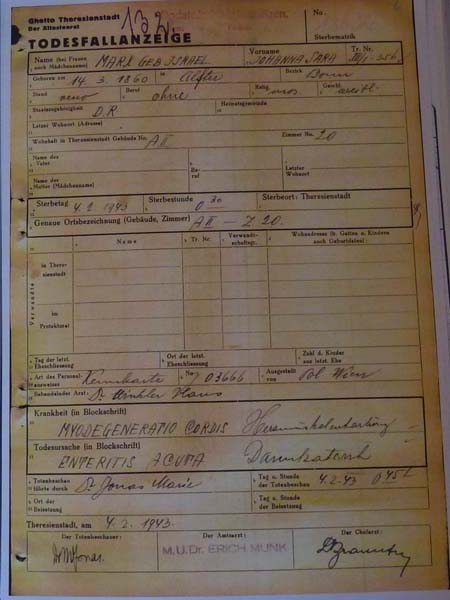 Ghetto Theresienstadt
Der Ältestenrat
132
No.
TODESFALLANZEIGE
Sterbematrik
Name (bei Frauen auch Mädchenname) MARX GEB ISRAEL Vorname JOHANNA SARA Tr. Nr.
Geboren am 14.3.1860 in Alfter Bezirk Bonn
Stand verw Beruf ohne Relig. mos Geschl. weibl.
Staatszugehörigkeit D.R Heimatsgemeinde
Letzter Wohnort (Adresse)
Wohnhaft in Theresienstadt Gebäude No. A II Zimmer No. 20
Name des Vater Beruf Letzter Wohnort
Name der Mutter (Mädchenname)
Sterbetag 4.2.1943 Sterbestunde 0 30 Sterbeort: Theresienstadt
Genaue Ortsbezeichnung (Gebäude, Zimmer) A II - Z 20.
Name Tr. Nr. Verwandtschaftsgr. Wohnadresse (bl. Gatten u. Kindern auch Geburtsdaten)
Verwandte
in Theresienstadt
im Protektorat
Tag der letzt. Eheschliessung Ort der letzt. Eheschliessung Zahl d. Kinder aus letzt. Ehe
Art des Personalausweises Kennkarte No. 03666 Ausgestellt von Pol. Wien
Behandelnder Arzt: Dr Winkler Hans
Krankheit (in Blockschrift)
MYODEGENERATIO CORDIS
Todesursache (in Blockschrift)
ENTERITIS ACUTA Darmkatarrh
Totenbeschau führte durch Dr Jonas Marie Tag u. Stunde der Totenbeschau 4.2.43 0 45
Ort der Beisetzung Tag u. Stunde der Beisetzung
Theresienstadt, am 4.2.1943.
Der Totenbeschauer: Der Amtsarzt: Der Chefarzt:
M.U.Dr. ERICH MUNK